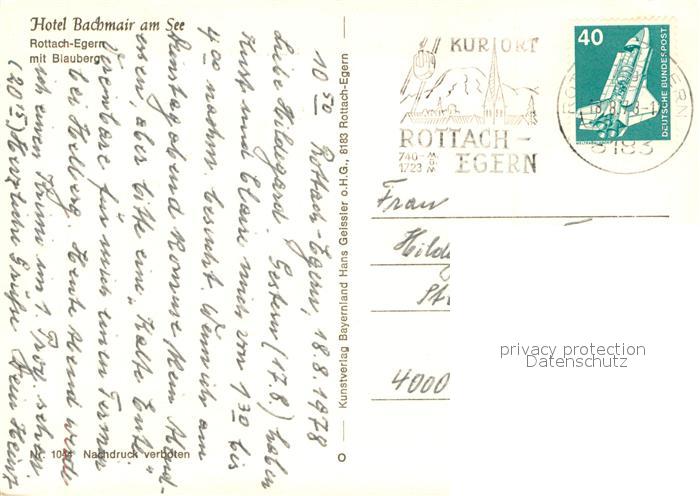 Hotel Bachmair am See
Rottach-Egern
mit Blauberge
10 50 Rottach-Egern, 18.8.1978
Liebe Hildegard. Gestern (17.8) haben
Kurt und Claire mich von 1 30 bis
4 00 nachm. besucht. Wenn ich am
Dienstag abend komme kein Abend-
essen, aber bitte eine "halbe Ente".
Vereinbare für mich einen Termin
bei Helberg. Heute Abend werde
ich einen Krimi im 1. Prog. sehen
(20 15) Herzliche Grüße Dein Heinz
Nr. 1044 Nachdruck verboten
Kunstverlag Bayernland Hans Geissler o.H.G., 8183 Rottach-Egern
KURORT
ROTTACH-
EGERN
740-
1723
40
DEUTSCHE BUNDESPOST
8183
Frau
Hild
Str
4000
privacy protection
Datenschutz